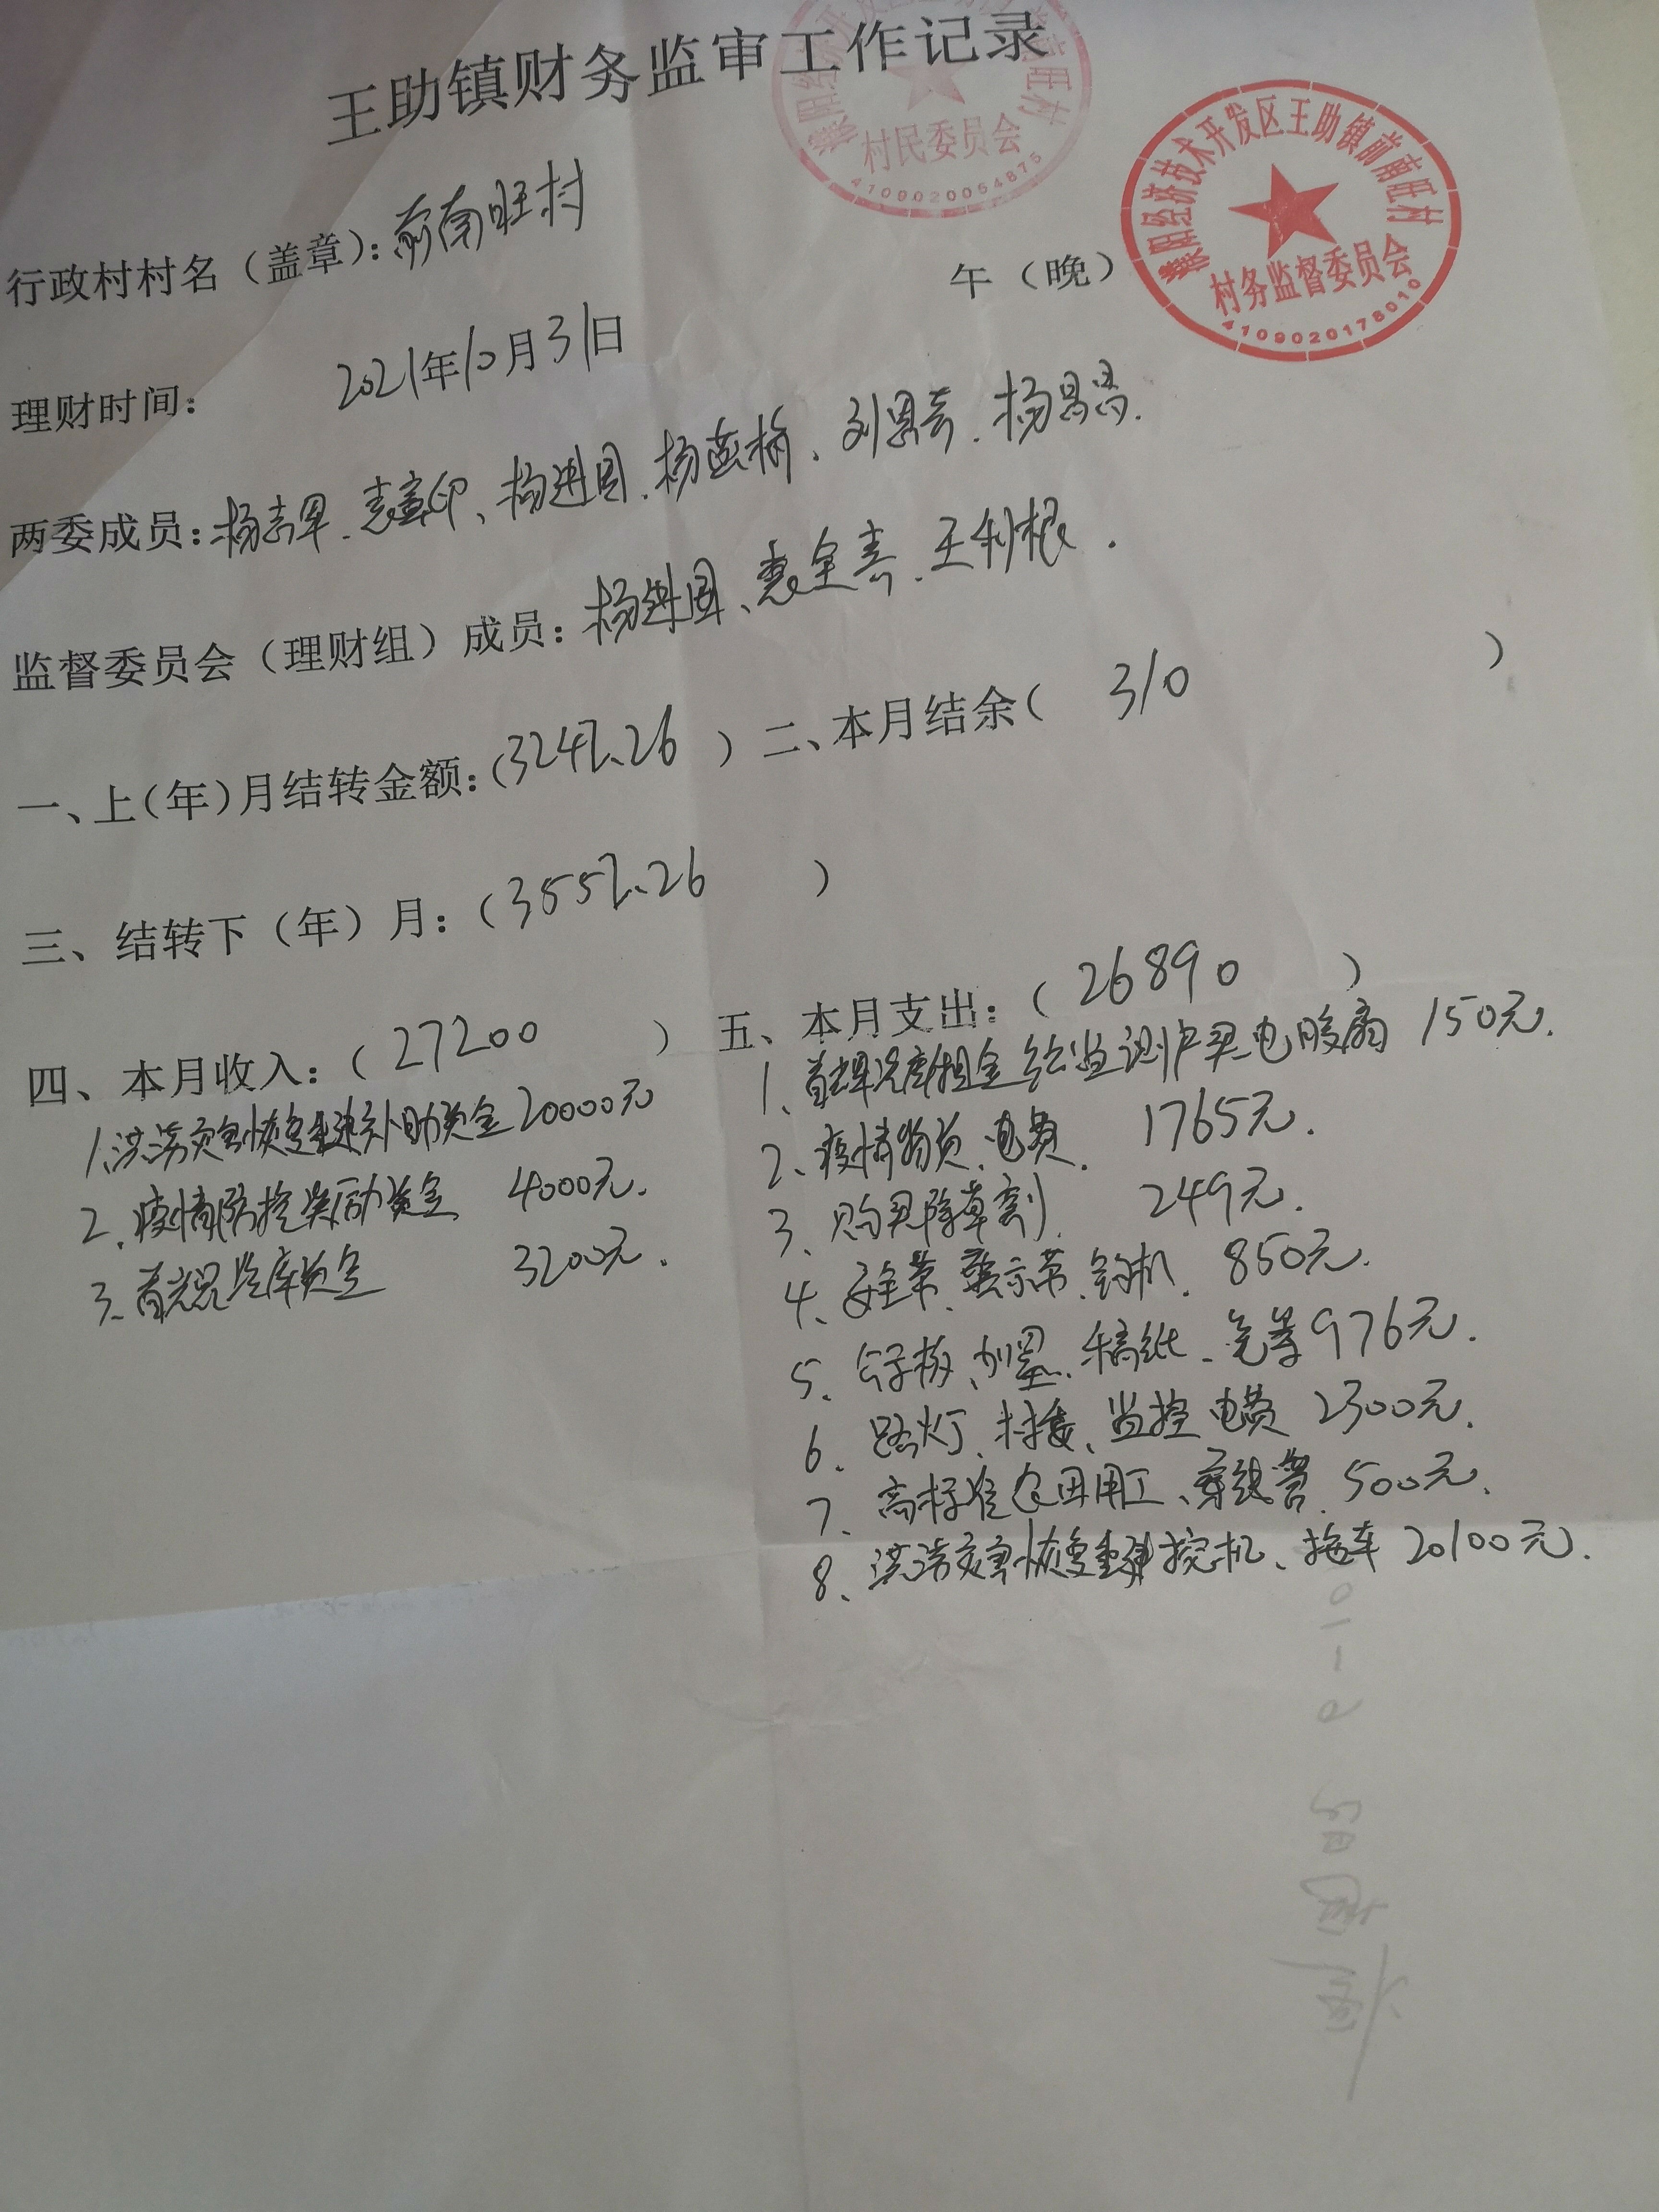 王助镇财务监审工作记录
村民委员会
4109020054875
濮阳经济技术开发区王助镇前南旺村
村务监督委员会
4109020178010
行政村村名（盖章）：前南旺村
午（晚）
理财时间： 2021年10月31日
两委成员：杨志军、惠章印、杨进国、杨燕梅、刘思奇、杨昌昌.
监督委员会（理财组）成员：杨进国、惠全喜、王利根.
一、上（年）月结转金额：（ ） 二、本月结余（ 310 ）
三、结转下（年）月：（ ）
四、本月收入：（ 27200 ） 五、本月支出：（ 26890 ）
1、洪涝灾害恢复重建补助资金20000元
2、疫情防控奖励资金 4000元.
3、 冷库资金 3200元.
1、 冷库租金给监测户买电 扇 150元.
2、疫情物资、电费. 1765元.
3、购买除草剂. 249元.
4、安全带、警示带、 机. 850元.
5、 板、加墨、稿纸、 等976元.
6、路灯、村委、监控电费 2300元.
7、高标准农田用工、穿线管. 500元.
8、洪涝灾害恢复重建挖机、拖车 20100元.